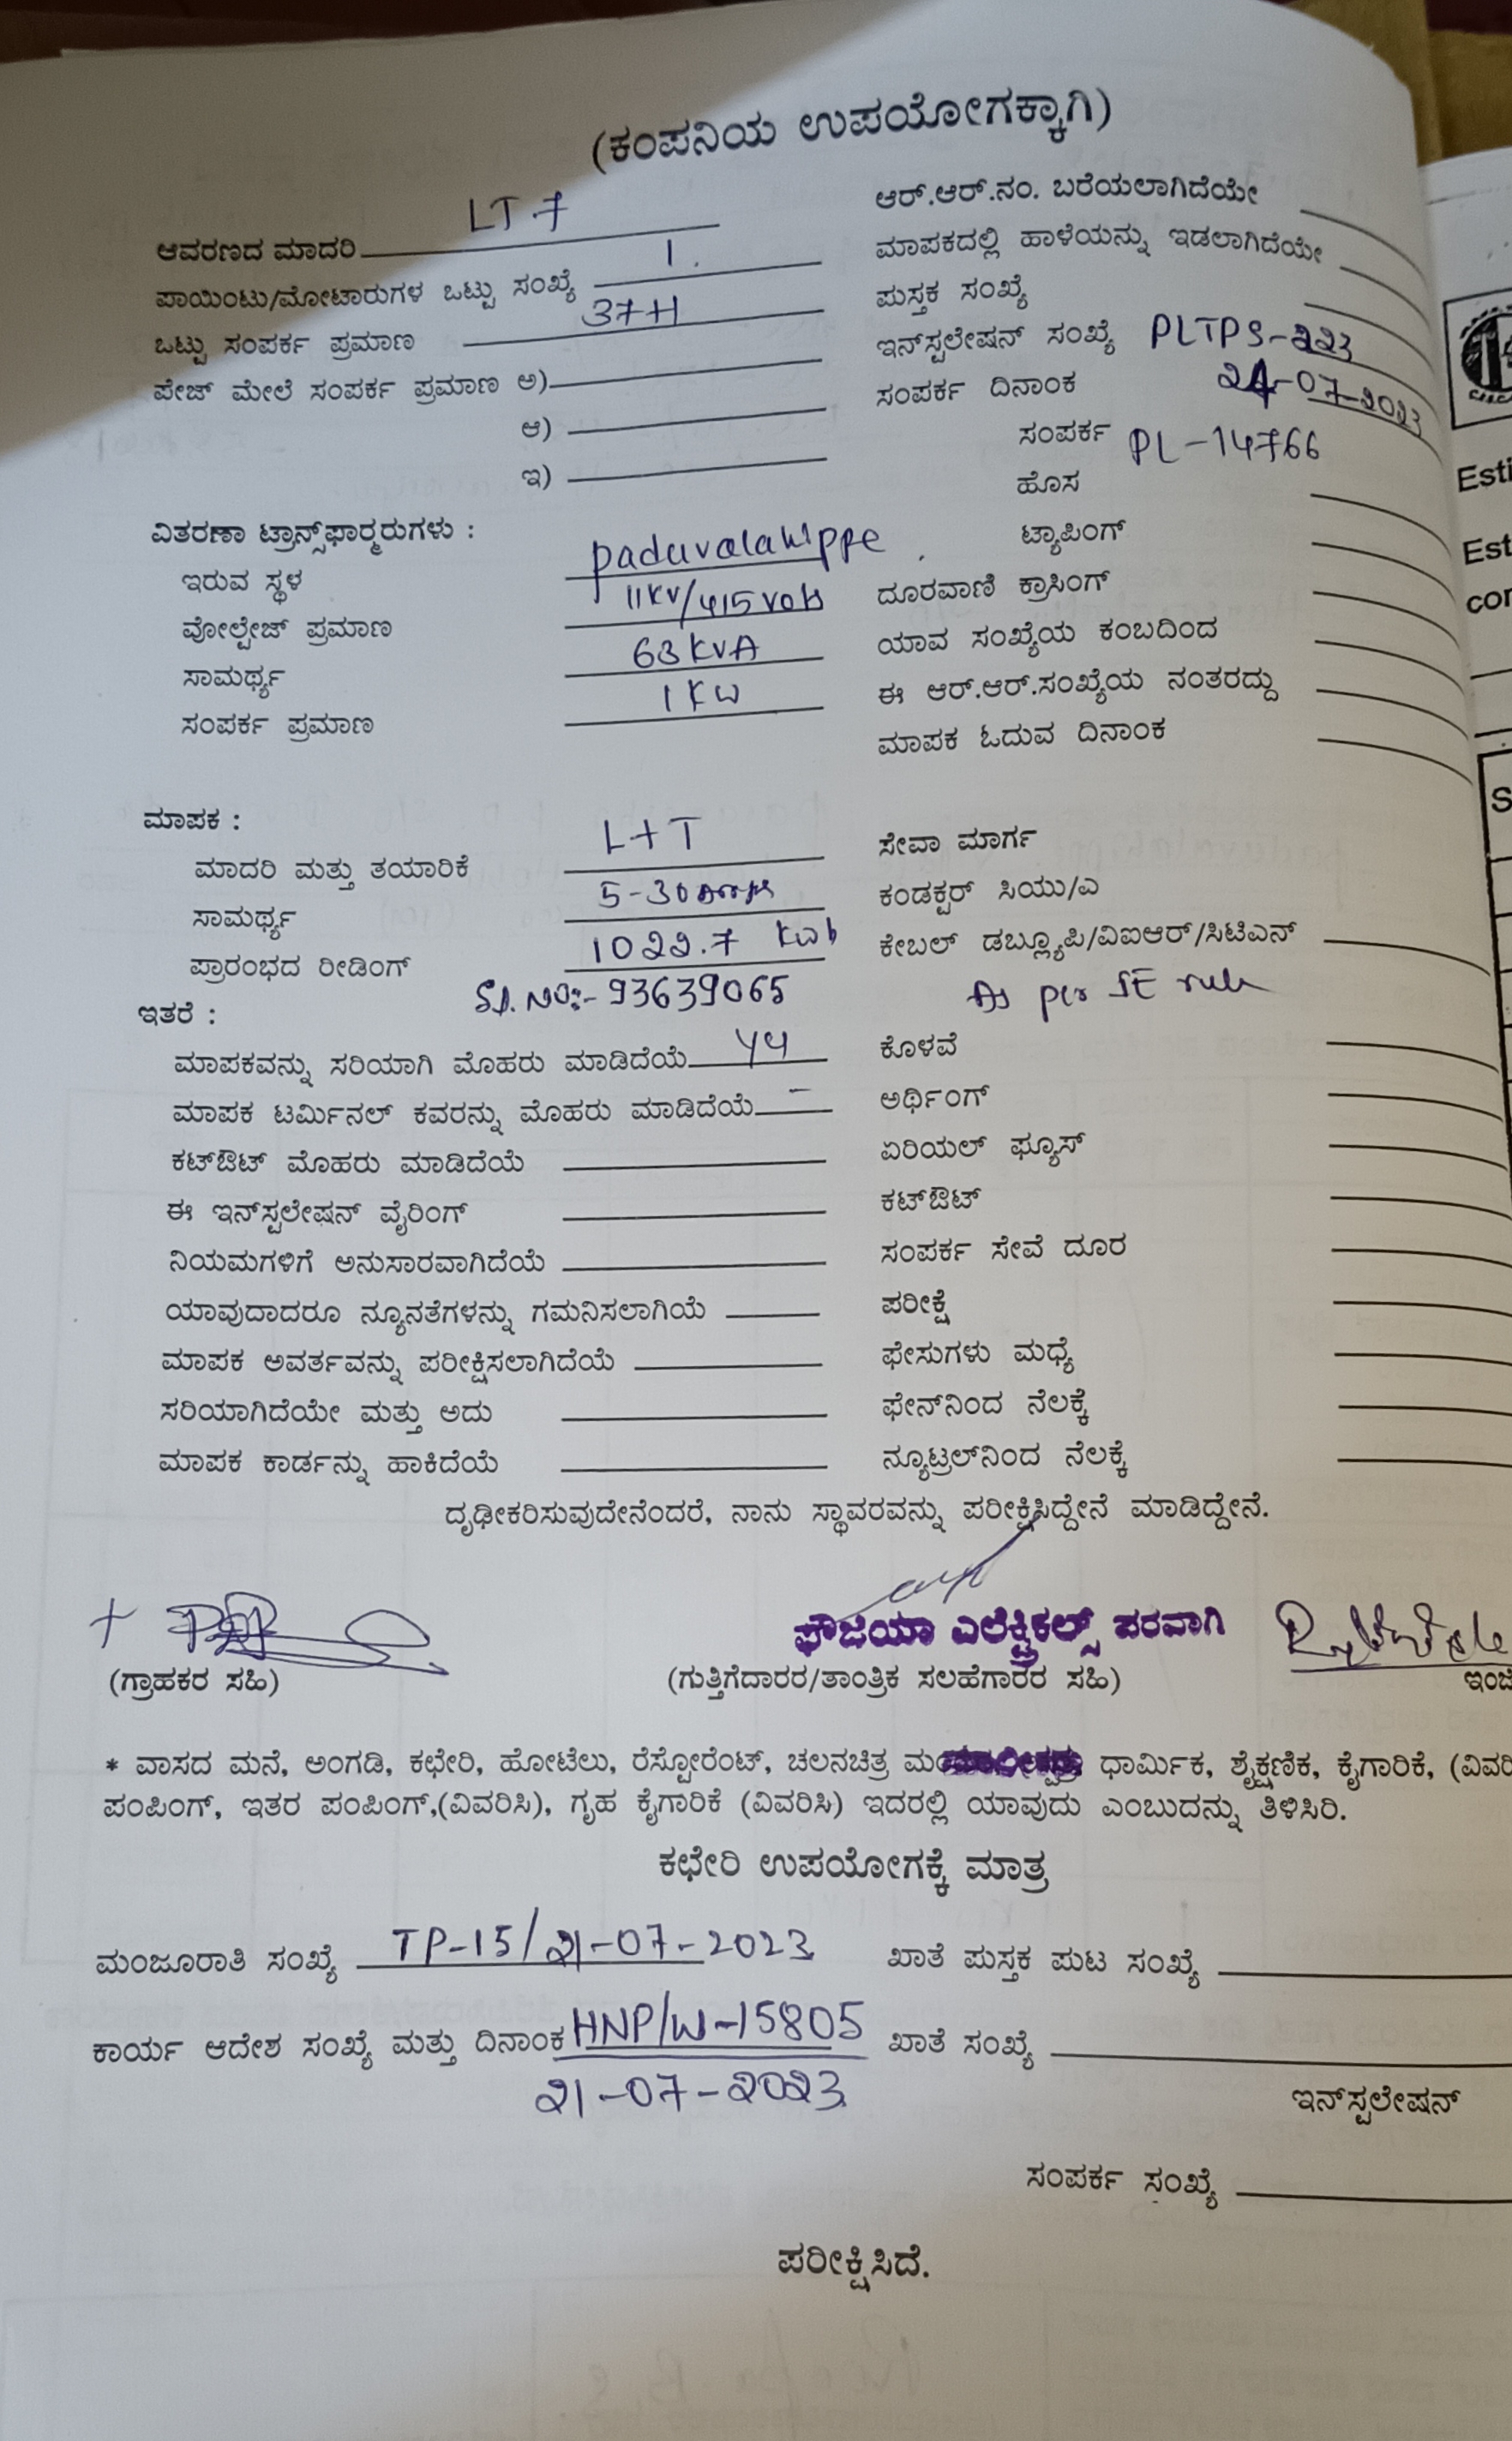 (ಕಂಪನಿಯ ಉಪಯೋಗಕ್ಕಾಗಿ)
ಆವರಣದ ಮಾದರಿ LT 7
ಪಾಯಿಂಟು/ಮೋಟಾರುಗಳ ಒಟ್ಟು ಸಂಖ್ಯೆ 1.
ಒಟ್ಟು ಸಂಪರ್ಕ ಪ್ರಮಾಣ 37H
ಪೇಜ್ ಮೇಲೆ ಸಂಪರ್ಕ ಪ್ರಮಾಣ ಅ)
ಆ)
ಇ)
ವಿತರಣಾ ಟ್ರಾನ್ಸ್‌ಫಾರ್‍ಮರುಗಳು :
ಇರುವ ಸ್ಥಳ paduvalahippe
ವೋಲ್ಟೇಜ್ ಪ್ರಮಾಣ 11KV/415 Volt
ಸಾಮರ್ಥ್ಯ 63 KVA
ಸಂಪರ್ಕ ಪ್ರಮಾಣ 1 KW
ಮಾಪಕ :
ಮಾದರಿ ಮತ್ತು ತಯಾರಿಕೆ L+T
ಸಾಮರ್ಥ್ಯ 5-30
ಪ್ರಾರಂಭದ ರೀಡಿಂಗ್ 1022.7 Kwh
Sl. No:- 93639065
ಇತರೆ :
ಮಾಪಕವನ್ನು ಸರಿಯಾಗಿ ಮೊಹರು ಮಾಡಿದೆಯೆ
ಮಾಪಕ ಟರ್ಮಿನಲ್ ಕವರನ್ನು ಮೊಹರು ಮಾಡಿದೆಯೆ –
ಕಟ್‌ಔಟ್ ಮೊಹರು ಮಾಡಿದೆಯೆ
ಈ ಇನ್‌ಸ್ಟಲೇಷನ್ ವೈರಿಂಗ್
ನಿಯಮಗಳಿಗೆ ಅನುಸಾರವಾಗಿದೆಯೆ
ಯಾವುದಾದರೂ ನ್ಯೂನತೆಗಳನ್ನು ಗಮನಿಸಲಾಗಿಯೆ
ಮಾಪಕ ಅವರ್ತವನ್ನು ಪರೀಕ್ಷಿಸಲಾಗಿದೆಯೆ
ಸರಿಯಾಗಿದೆಯೇ ಮತ್ತು ಅದು
ಮಾಪಕ ಕಾರ್ಡನ್ನು ಹಾಕಿದೆಯೆ
ಆರ್.ಆರ್.ನಂ. ಬರೆಯಲಾಗಿದೆಯೇ
ಮಾಪಕದಲ್ಲಿ ಹಾಳೆಯನ್ನು ಇಡಲಾಗಿದೆಯೇ
ಪುಸ್ತಕ ಸಂಖ್ಯೆ
ಇನ್‌ಸ್ಟಲೇಷನ್ ಸಂಖ್ಯೆ PLTPS-223
ಸಂಪರ್ಕ ದಿನಾಂಕ 24-07-2023
ಸಂಪರ್ಕ PL-14766
ಹೊಸ
ಟ್ಯಾಪಿಂಗ್
ದೂರವಾಣಿ ಕ್ರಾಸಿಂಗ್
ಯಾವ ಸಂಖ್ಯೆಯ ಕಂಬದಿಂದ
ಈ ಆರ್.ಆರ್.ಸಂಖ್ಯೆಯ ನಂತರದ್ದು
ಮಾಪಕ ಓದುವ ದಿನಾಂಕ
ಸೇವಾ ಮಾರ್ಗ
ಕಂಡಕ್ಟರ್ ಸಿಯು/ಎ
ಕೇಬಲ್ ಡಬ್ಲ್ಯೂಪಿ/ವಿಐಆರ್/ಸಿಟಿಎನ್
As per IE rule
ಕೊಳವೆ
ಅರ್ಥಿಂಗ್
ಏರಿಯಲ್ ಫ್ಯೂಸ್
ಕಟ್‌ಔಟ್
ಸಂಪರ್ಕ ಸೇವೆ ದೂರ
ಪರೀಕ್ಷೆ
ಫೇಸುಗಳು ಮಧ್ಯೆ
ಫೇನ್‌ನಿಂದ ನೆಲಕ್ಕೆ
ನ್ಯೂಟ್ರಲ್‌ನಿಂದ ನೆಲಕ್ಕೆ
ದೃಢೀಕರಿಸುವುದೇನೆಂದರೆ, ನಾನು ಸ್ಥಾವರವನ್ನು ಪರೀಕ್ಷಿಸಿದ್ದೇನೆ ಮಾಡಿದ್ದೇನೆ.
ಫೌಜಯಾ ಎಲೆಕ್ಟ್ರಿಕಲ್ಸ್ ಪರವಾಗಿ
(ಗ್ರಾಹಕರ ಸಹಿ) (ಗುತ್ತಿಗೆದಾರರ/ತಾಂತ್ರಿಕ ಸಲಹೆಗಾರರ ಸಹಿ) ಇಂಜಿ
* ವಾಸದ ಮನೆ, ಅಂಗಡಿ, ಕಛೇರಿ, ಹೋಟೆಲು, ರೆಸ್ಟೋರೆಂಟ್, ಚಲನಚಿತ್ರ ಧಾರ್ಮಿಕ, ಶೈಕ್ಷಣಿಕ, ಕೈಗಾರಿಕೆ, (ವಿವರಿ
ಪಂಪಿಂಗ್, ಇತರ ಪಂಪಿಂಗ್,(ವಿವರಿಸಿ), ಗೃಹ ಕೈಗಾರಿಕೆ (ವಿವರಿಸಿ) ಇದರಲ್ಲಿ ಯಾವುದು ಎಂಬುದನ್ನು ತಿಳಿಸಿರಿ.
ಕಛೇರಿ ಉಪಯೋಗಕ್ಕೆ ಮಾತ್ರ
ಮಂಜೂರಾತಿ ಸಂಖ್ಯೆ TP-15/21-07-2023 ಖಾತೆ ಪುಸ್ತಕ ಪುಟ ಸಂಖ್ಯೆ
ಕಾರ್ಯ ಆದೇಶ ಸಂಖ್ಯೆ ಮತ್ತು ದಿನಾಂಕ HNP/W-15805 ಖಾತೆ ಸಂಖ್ಯೆ
21-07-2023
ಇನ್‌ಸ್ಟಲೇಷನ್
ಸಂಪರ್ಕ ಸಂಖ್ಯೆ
ಪರೀಕ್ಷಿಸಿದೆ.
Esti
Est
cor
S